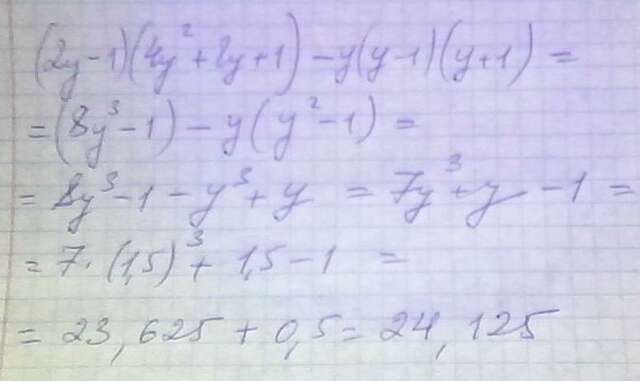 (2y-1)(4y²+2y+1)-y(y-1)(y+1)=
=(8y³-1)-y(y²-1)=
=8y³-1-y³+y=7y³+y-1=
=7·(1,5)³+1,5-1=
=23,625+0,5=24,125